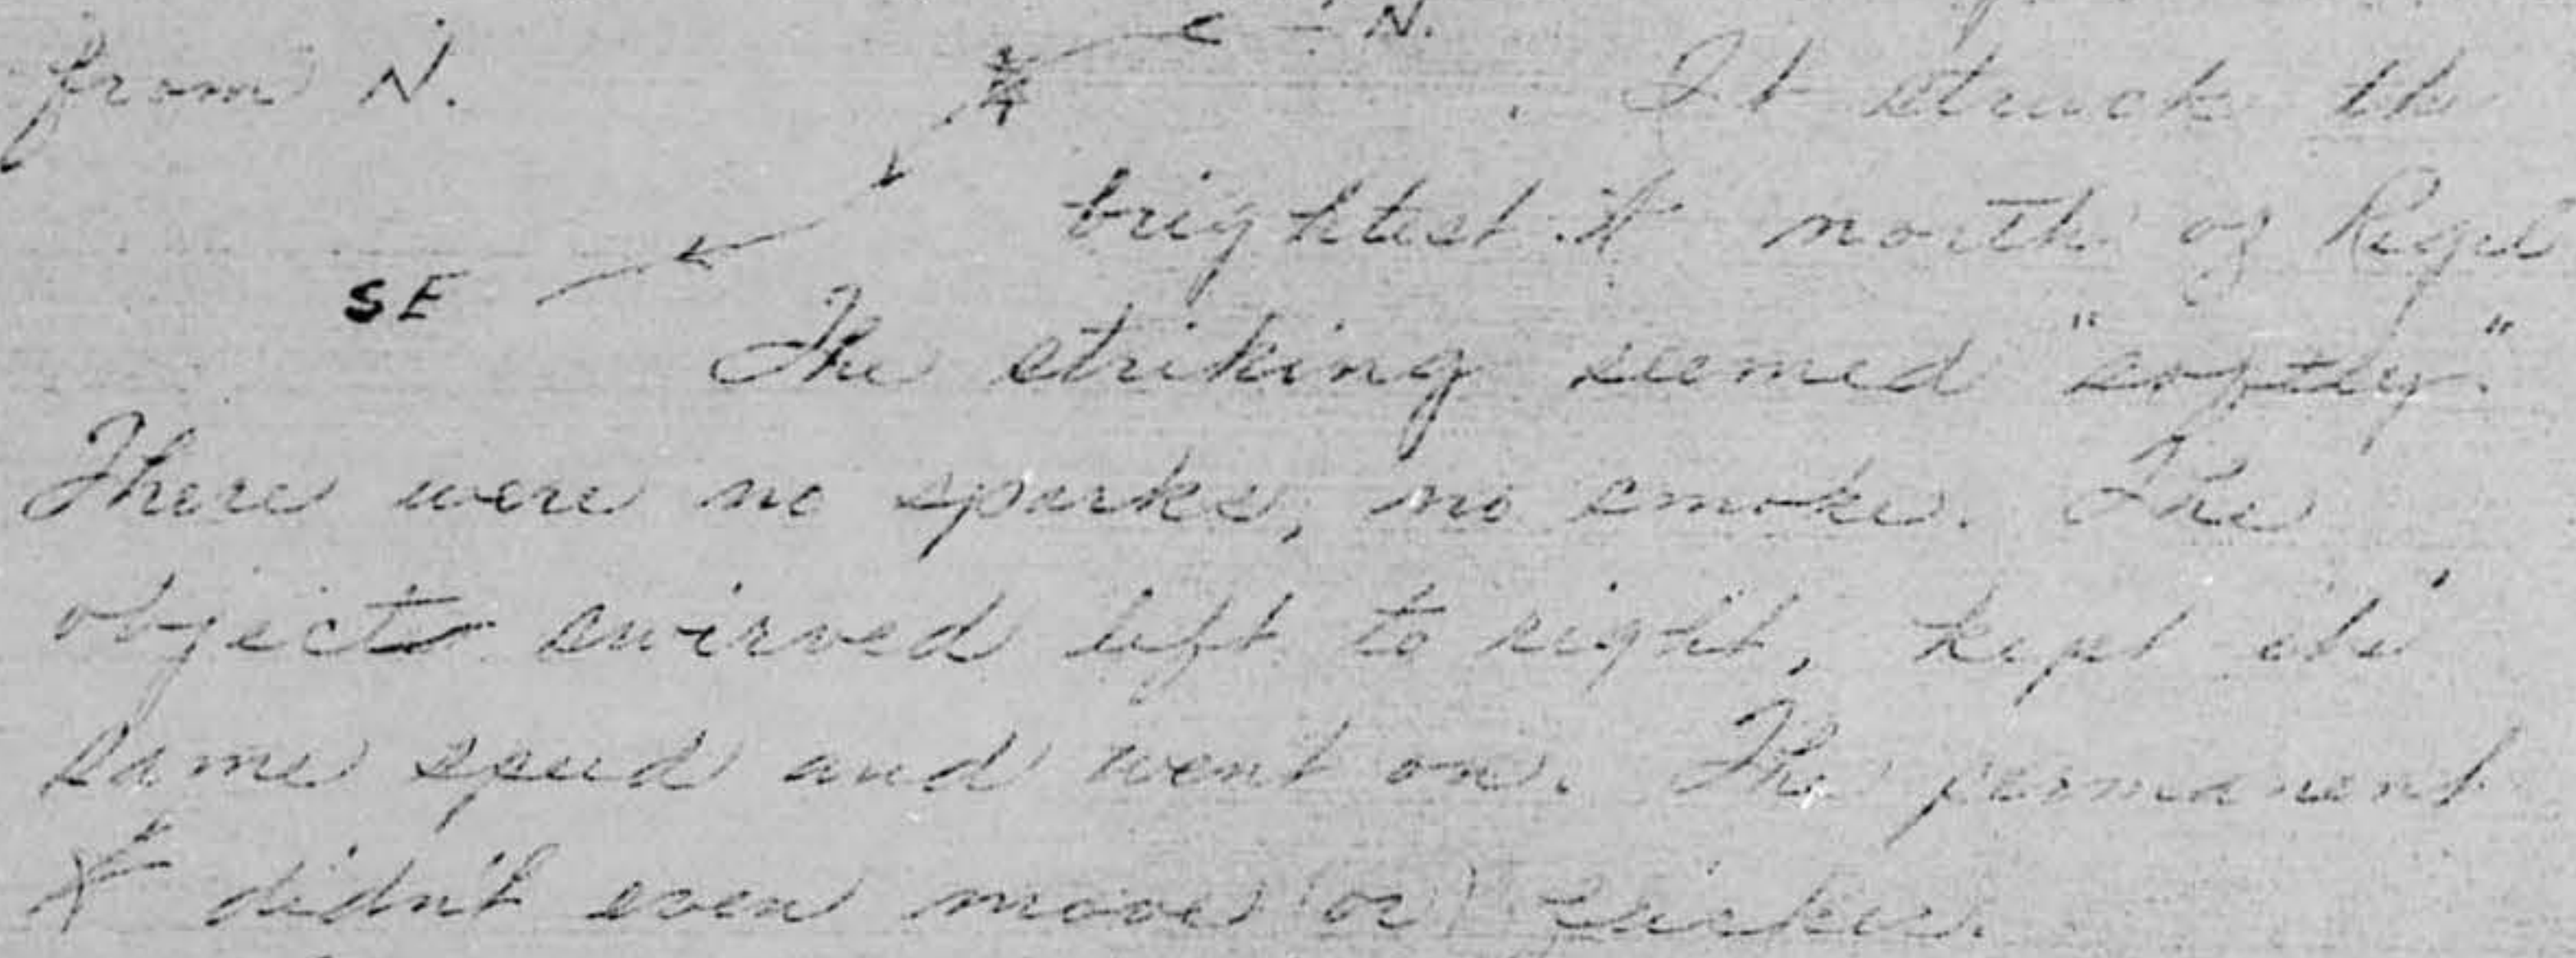 N.
from N. . It struck th
brightest north of Rigel
SE
The striking seemed "softly."
There were no sparks, no smoke. The
object swirved left to right, kept its'
same speed and went on. The permanent
didn't even move (or)